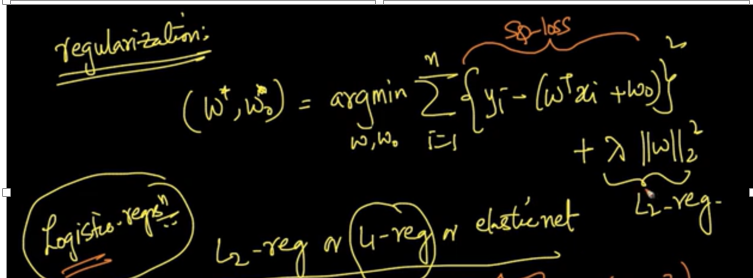 regularization:
sq-loss
(w*, w₀*) = argmin_{w,w₀} Σ_{i=1}^{n} {yi - (wᵀxi + w₀)}²
+ λ ||w||₂²
L₂-reg-
Logistic-regrⁿ
L₂-reg or L₁-reg or elastic net